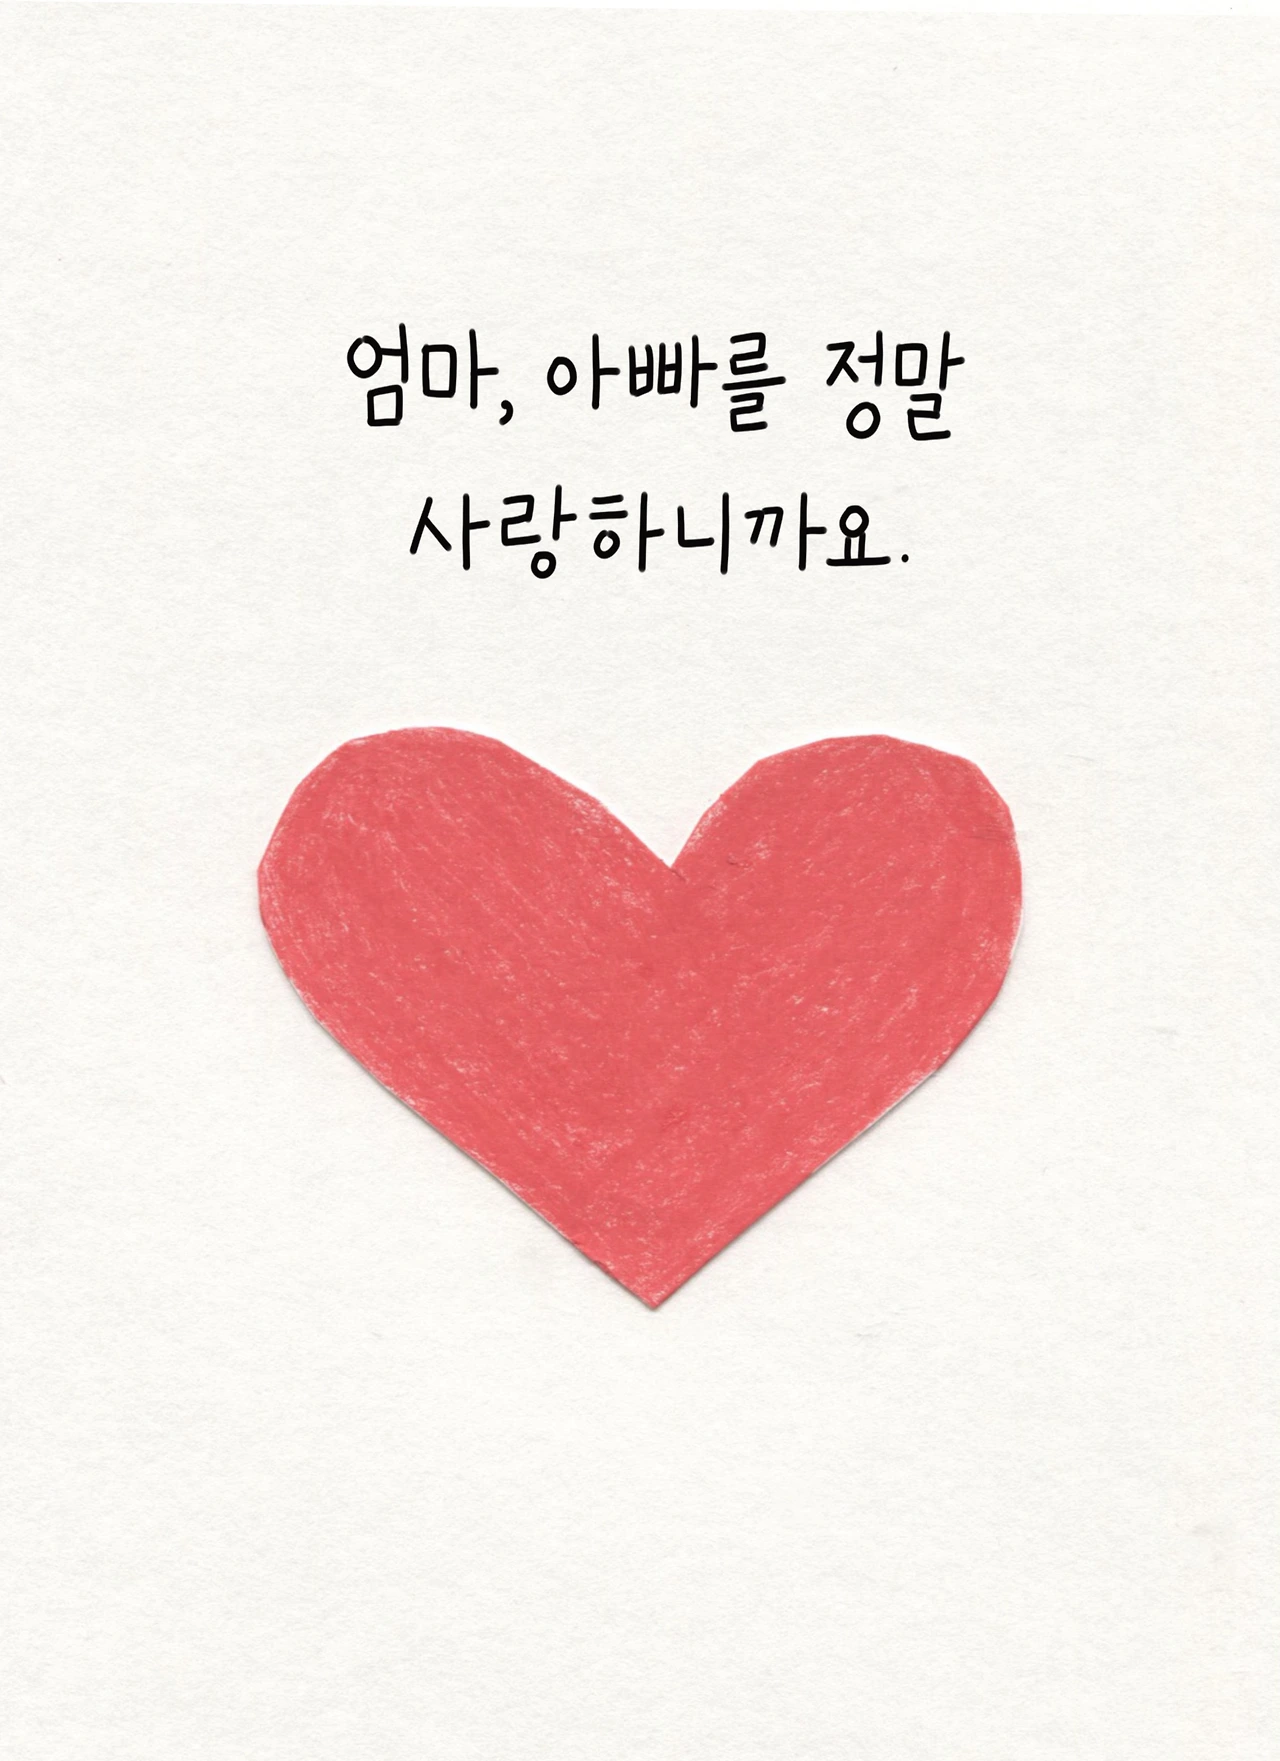 엄마, 아빠를 정말
사랑하니까요.